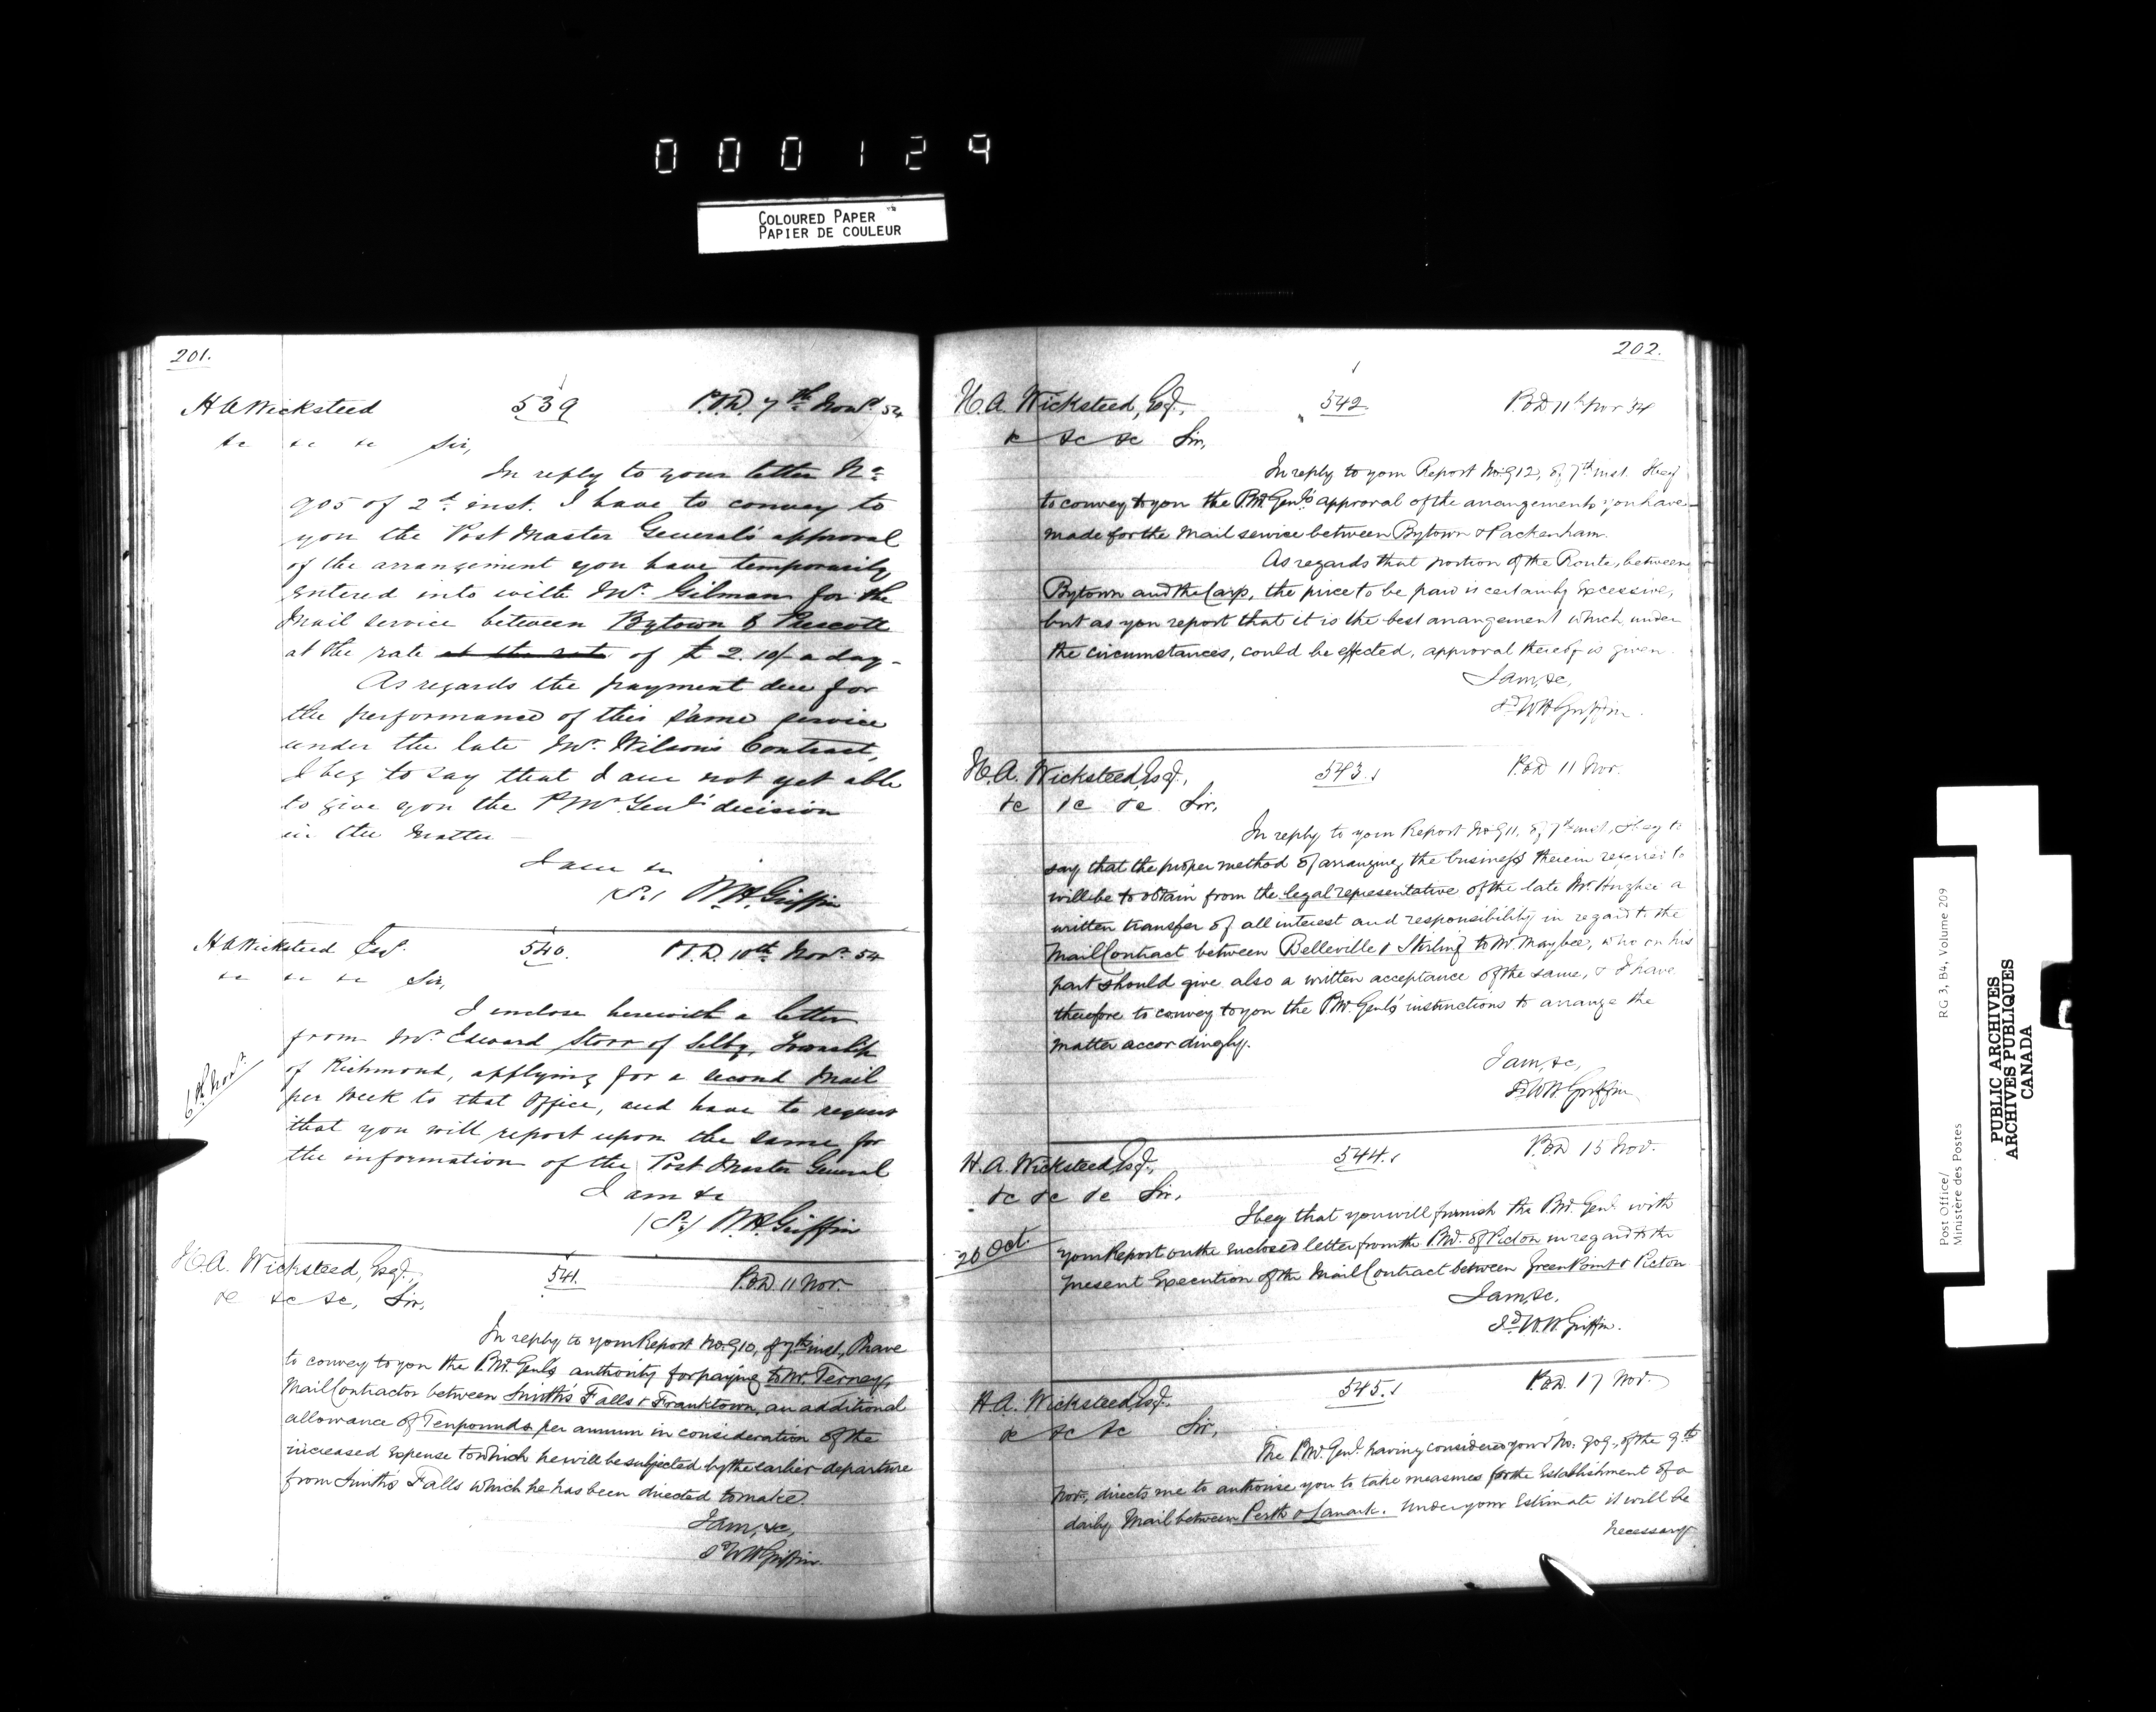 000129
COLOURED PAPER
PAPIER DE COULEUR
201.
H A Wicksteed 539 P.O.D. 7th Novr 54
&c &c &c Sir,
In reply to your letter No
905 of 2d inst. I have to convey to
you the Post Master General's approval
of the arrangement you have temporarily
entered into with Mr. Gilman for the
Mail service between Bytown & Prescott
at the rate at the rate of £2.10/- a day -
As regards the payment due for
the performance of this same service
under the late Mr. Wilson's Contract,
I beg to say that I am not yet able
to give you the P Mr Genl's decision
in the matter -
I am &c
(Sd) W.H. Griffin
H A Wicksteed Esqr. 540. P.O.D. 10th Novr. 54
&c &c &c Sir,
I inclose herewith a letter
from Mr. Edward Storr of Selby, Township
of Richmond, applying for a second Mail
6th Novr.
per Week to that Office, and have to request
that you will report upon the same for
the information of the Post Master General
I am &c
(Sd) W.H. Griffin
H.A. Wicksteed, Esqr., 541. P.O.D. 11 Nov.
&c &c &c, Sir,
In reply to your Report No. 910, of 7th inst., I have
to convey to you the P.M. Genl's authority for paying to Mr. Terney,
Mail Contractor between Smith's Falls & Franktown, an additional
allowance of Ten pounds per annum in consideration of the
increased expense to which he will be subjected by the earlier departure
from Smith's Falls which he has been directed to make.
I am, &c,
Sd W H Griffin.
202.
H.A. Wicksteed, Esqr., 542. P.O.D 11th Nov '54
&c &c &c Sir,
In reply to your Report No. 912, of 7th inst. I beg
to convey to you the P.M. Genl's approval of the arrangements you have
made for the Mail service between Bytown & Packenham.
As regards that portion of the Route, between
Bytown and the Carp, the price to be paid is certainly excessive,
but as you report that it is the best arrangement which, under
the circumstances, could be effected, approval thereof is given.
I am, &c,
Sd W H Griffin.
H.A. Wicksteed, Esqr., 543. P.O.D 11 Nov.
&c &c &c Sir,
In reply to your Report No. 911, of 7th inst, I beg to
say that the proper method of arranging the business therein referred to
will be to obtain from the legal representative of the late Mr. Hughes a
written transfer of all interest and responsibility in regard to the
Mail Contract between Belleville & Stirling to Mr. Maybee, who on his
part should give also a written acceptance of the same, & I have
therefore to convey to you the P.M. Genl's instructions to arrange the
matter accordingly.
I am, &c,
Sd W H. Griffin
H.A. Wicksteed, Esqr., 544. P.O.D 15 Nov.
&c &c &c Sir,
I beg that you will furnish the P.M. Genl. with
20 Oct.
your Report on the enclosed letter from the P.M. of Picton in regard to the
present execution of the Mail Contract between Green Point & Picton
I am, &c.
Sd W.H. Griffin.
H.A. Wicksteed, Esqr. 545. P.O.D. 17 Nov.
&c &c &c Sir,
The P.M. Genl. having considered your No. 909, of the 9th
Novr., directs me to authorise you to take measures for the establishment of a
daily Mail between Perth & Lanark. Under your Estimate it will be
necessary
Post Office/
Ministère des Postes
RG 3, B4, Volume 209
PUBLIC ARCHIVES
ARCHIVES PUBLIQUES
CANADA